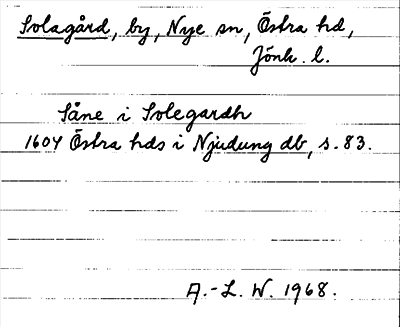 Solagård, by, Nye sn, Östra hd,
Jönk. l.
Såne i Solegardh
1604 Östra hds i Njudung db, s. 83.
A.-L. W. 1968.